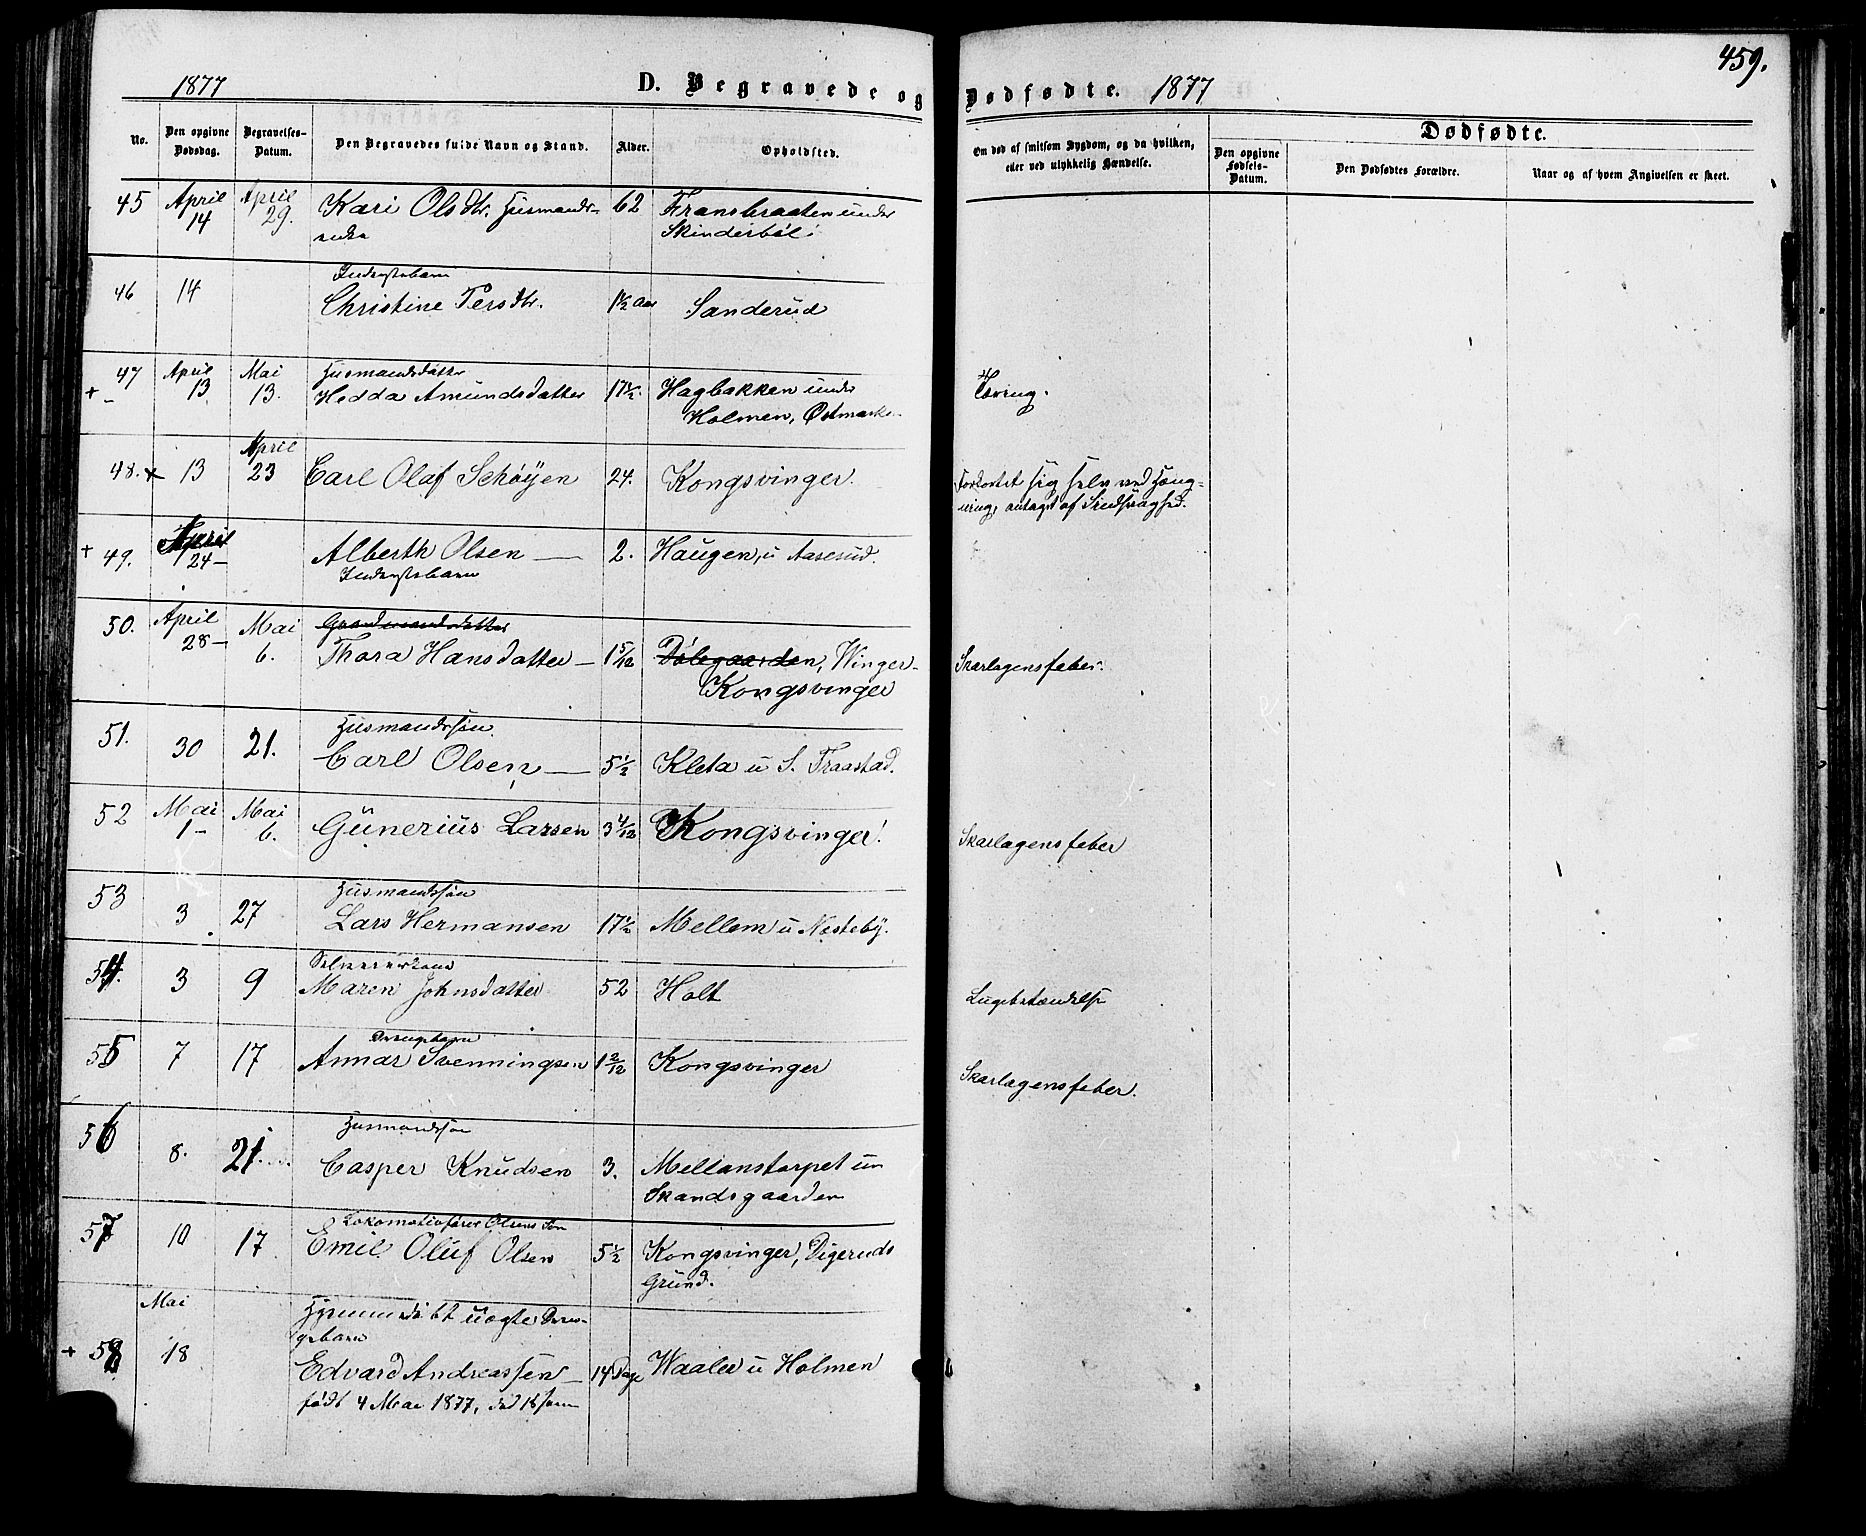 459.
1877
D. Begravede og Dødfødte. 1877
No.
Den opgivne Dødsdag.
Begravelses-Datum.
Den Begravedes fulde Navn og Stand.
Alder.
Opholdsted.
Om død af smitsom Sygdom, og da hvilken,
eller ved ulykkelig Hændelse.
Dødfødte.
Den opgivne Fødsels-Datum.
Den Dødfødtes Forældre.
Naar og af hvem Angivelsen er skeet.
45 April 14 April 29. Kari Olsdtr. Husmands- 62 Fransbraaten under
enke Skinderböl
Inderstebarn
46 14 Christine Persdtr. 1½ Aar Sanderud
Husmandsdatter
+ 47 April 13 Mai 13. Hedda Amundsdatter 17½. Hagbakken under
Holmen, Östmarken
48. + 13 April 23 Carl Olaf Schøyen 24. Kongsvinger. Forkortet sig selv ved Hæng-
ning, antaget af Sindssvaghed.
+ 49. April 24 – Alberth Olsen — 2. Haugen, u Aaserud.
Inderstebarn
Gaardmandsdatter
50. April 28 – Mai 6. Thora Hansdatter – 1 5/12 Dölegaarden, Winger- Skarlagensfeber.
Kongsvinger
Husmandssön
51. 30 21. Carl Olsen — 5½ Kleta u S. Fraastad.
52 Mai 1 – Mai 6. Gunerius Larsen 3 4/12 Kongsvinger! Skarlagensfeber
Husmandssön
53 3 27 Lars Hermansen 17½ Mellem u Nesteby.
54. 3 9 Maren Johnsdatter 52 Holt
55 7 17 Annar Svenningsen 1 2/12 Kongsvinger Skarlagensfeber.
Husmandssön
56 8. 21. Casper Knudsen 3. Mellanstorpet un
Skandsgaarden
Lokomotivförer Olsens Sön
57 10 17 Emil Oluf Olsen 5½ Kongsvinger, Digeruds
Grund.
Hjemmedöbt uægte
+ 58 Mai 18 Edvard Andreassen – 14 Dage Waaler u Holmen
födt 4 Mai 1877, död 18 samme